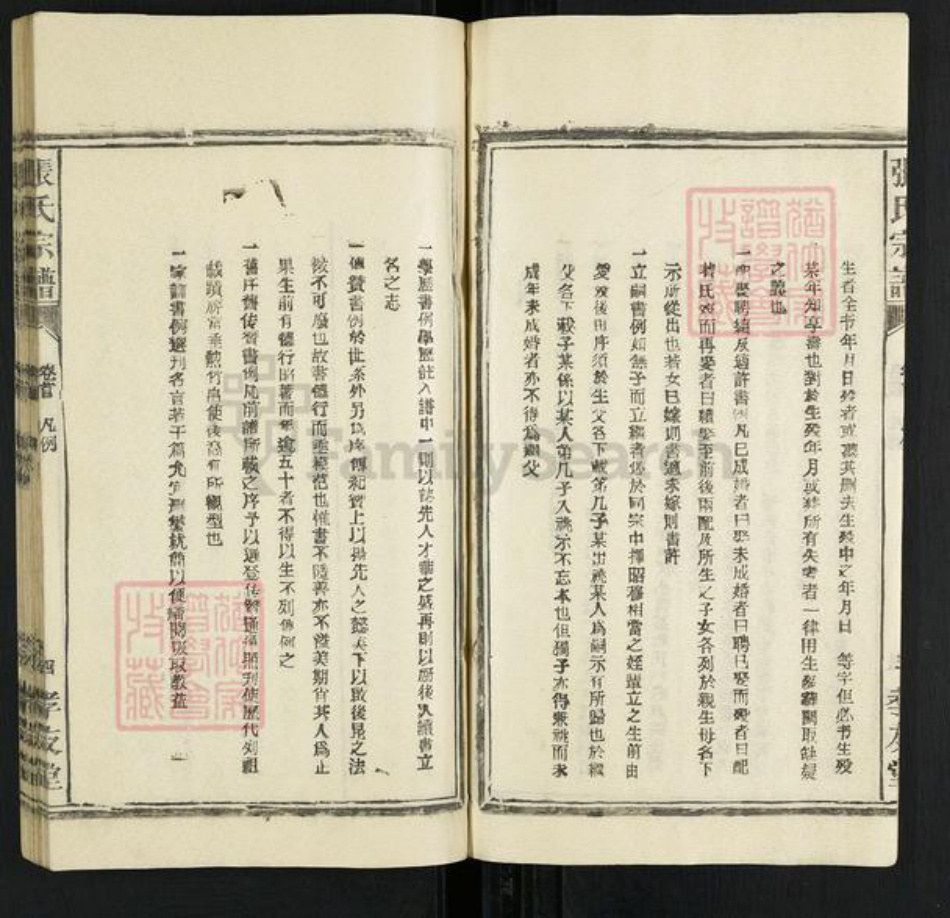 張氏宗譜
生者全书年月日殁者或譔其刪去生殁中之年月日 等字但必书生殁
某年知享壽也對於生殁年月或葬所有失考者一律用生殁葬闕取缺疑
之義也
一 娶聘續及適許書例凡已成婚者曰娶未成婚者曰聘已娶而殁者曰配
某氏殁而再娶者曰續娶至前後兩配及所生之子女各列於親生母名下
示所從出也若女已嫁則書適未嫁則書許
一立嗣書例如無子而立繼者必於同宗中擇昭穆相當之姪輩立之生前由
愛殁後由序須於生父名下載第几子某出祧某人為嗣示有所歸也於繼
父名下載子某係以某人第几子入祧示不忘本也但獨子亦得兼祧而未
成年未成婚者亦不得為嗣父
孝友堂
張氏宗譜
卷首 凡例
四 孝友堂
一學歷書例學歷註入譜中一則以誌先人才華之盛再則以勵後人讀書立
名之志
一傳贊書例於世系外另以序傳紀實上以揚先人之懿美下以啟後昆之法
故不可廢也故書德行而重模范也惟書不隱善亦不溢美期肖其人為止
果生前有德行昭著而年逾五十者不得以生不列傳例之
一舊序舊传贊書例凡前譜所載之序予以選登传贊通通照刊使歷代列祖
載蹟所當垂勲竹帛使後裔有所觀型也
一家訓書例選刊名言若干篇尤宜刪繁就簡以便繙閱吸取教益
FamilySearch